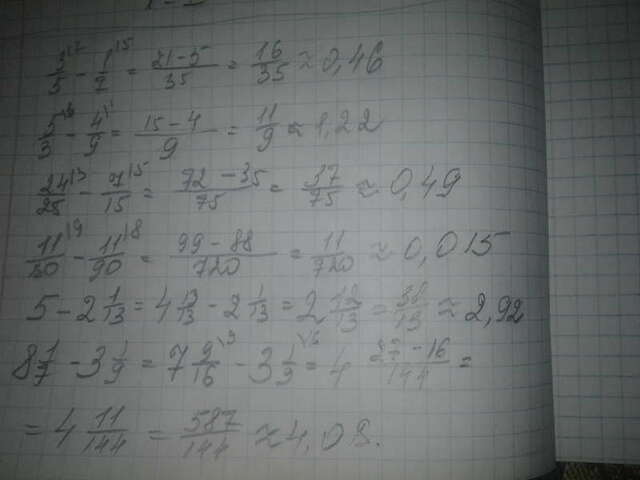 3/5 \7 − 1/7 \5 = 21−5/35 = 16/35 ≈ 0,46
5/3 \3 − 4/9 \1 = 15−4/9 = 11/9 ≈ 1,22
24/25 \3 − 7/15 \5 = 72−35/75 = 37/75 ≈ 0,49
11/80 \9 − 11/90 \8 = 99−88/720 = 11/720 ≈ 0,015
5 − 2 1/13 = 4 13/13 − 2 1/13 = 2 12/13 = 38/13 ≈ 2,92
− 3 1/9 = 7 − 3 = 4 27−16/144 =
= 4 11/144 = 587/144 ≈ 4,08.